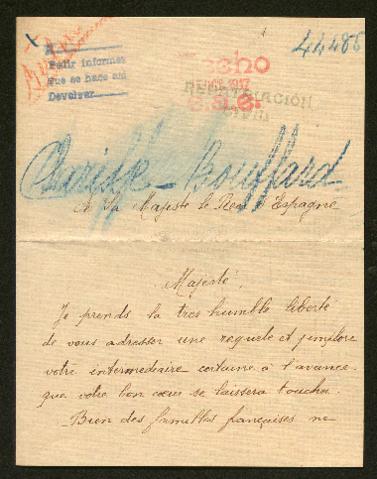 44486
Pedir informes
que se hace así
Devolver
Fecho
1917
REPATRIACIÓN
CIVIL
Bouffard
A Sa Majesté le Roi d'Espagne
Majesté,
Je prends la très humble liberté
de vous adresser une requete et j'implore
votre intermédiaire certaine à l'avance
que votre bon cœur se laissera toucher
Bien des familles françaises ne